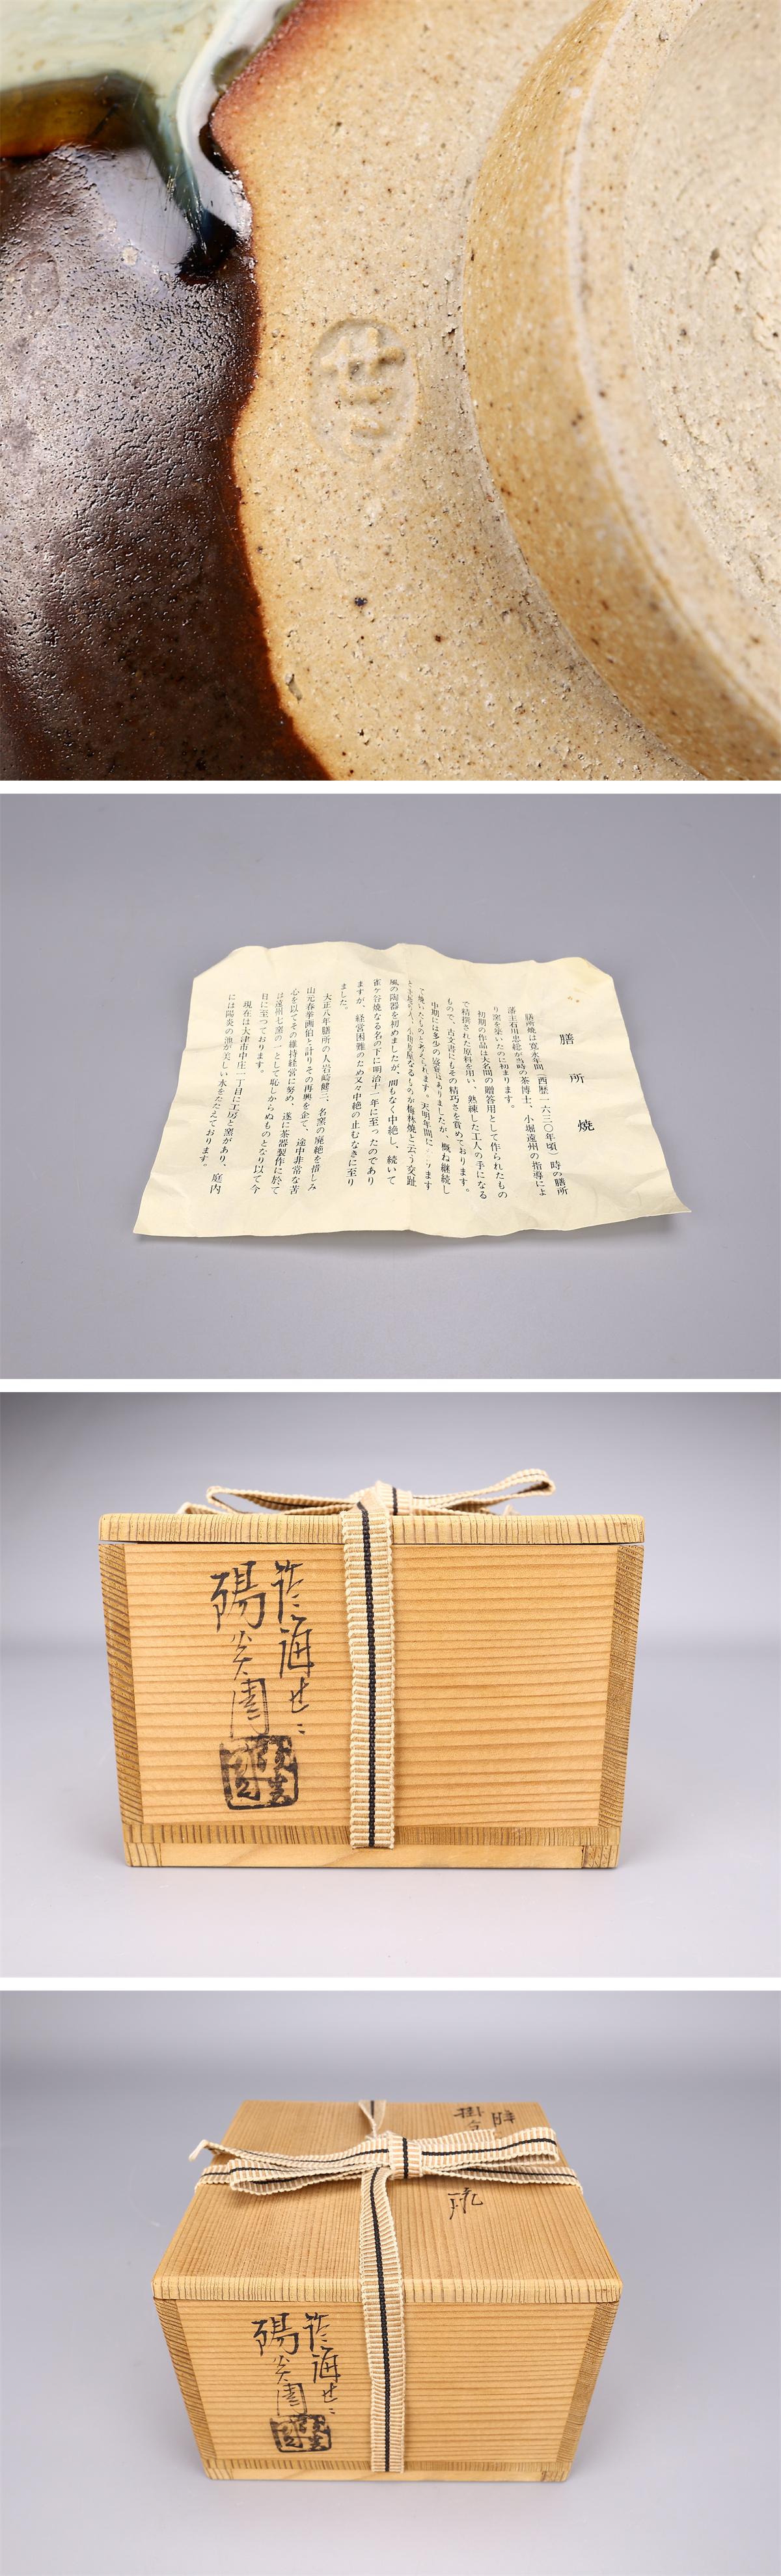 せゞ
膳所焼
膳所焼は寛永年間（西歴一六三〇年頃）時の膳所
藩主石川忠総が当時の茶博士、小堀遠州の指導によ
り窯を築いたのに初まります。
初期の作品は大名間の贈答用として作られたもの
で精撰された原料を用い、熟練した工人の手になる
もので、古文書にもその精巧さを賞めております。
中期には多少の盛衰はありましたが、概ね継続し
て焼いたものと考えられます。天明年間に
なるものが梅林焼と云う交趾
風の陶器を初めましたが、間もなく中絶し、続いて
雀ケ谷焼なる名の下に明治十一年に至ったのであり
ますが、経営困難のため又々中絶の止むなきに至り
ました。
大正八年膳所の人岩崎健三、名窯の廃絶を惜しみ
山元春挙画伯と計りその再興を企て、途中非常な苦
心を以てその維持経営に努め、遂に茶器製作に於て
は遠州七窯の一として恥しからぬものとなり以て今
日に至っております。
現在は大津市中庄一丁目に工房と窯があり、庭内
には陽炎の池が美しい水をたたえております。
陽炎園
掛分
陽炎園